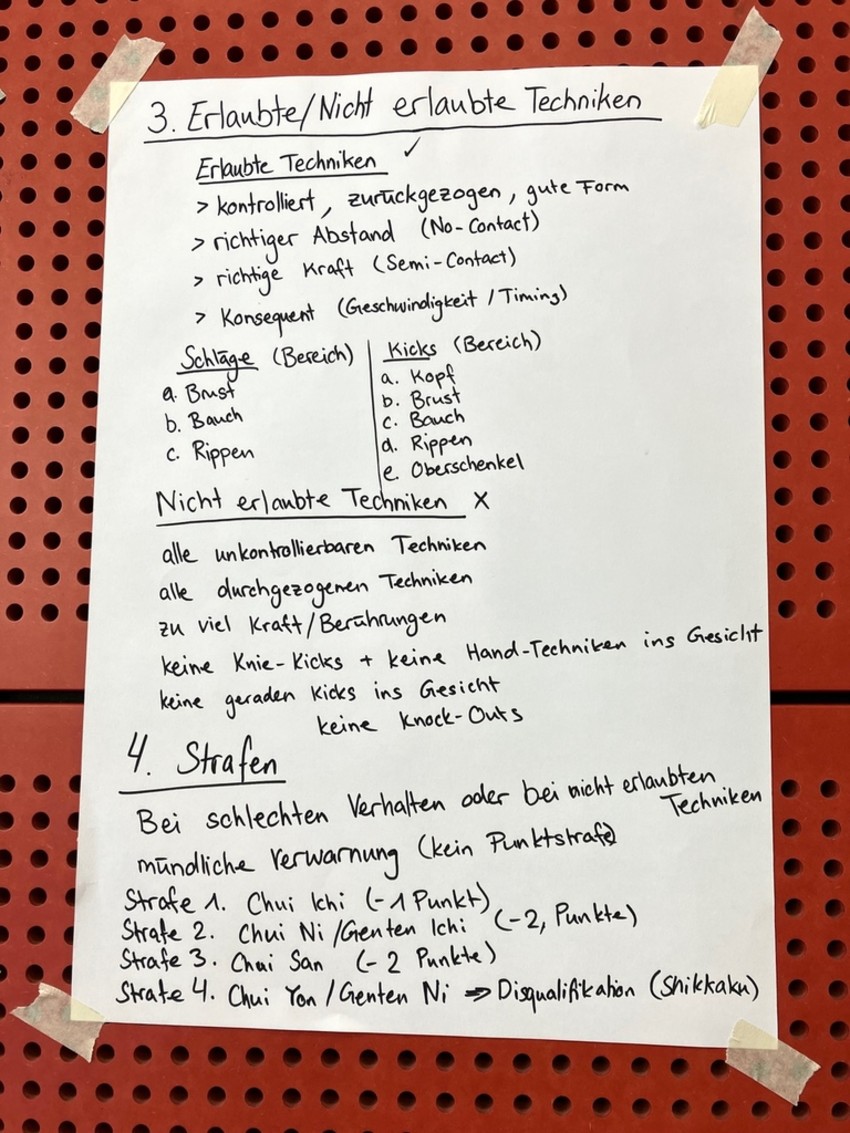 3. Erlaubte/Nicht erlaubte Techniken
Erlaubte Techniken ✓
> kontrolliert, zurückgezogen, gute Form
> richtiger Abstand (No-Contact)
> richtige Kraft (Semi-Contact)
> Konsequent (Geschwindigkeit / Timing)
Schläge (Bereich)
a. Brust
b. Bauch
c. Rippen
Kicks (Bereich)
a. Kopf
b. Brust
c. Bauch
d. Rippen
e. Oberschenkel
Nicht erlaubte Techniken x
alle unkontrollierbaren Techniken
alle durchgezogenen Techniken
zu viel Kraft/Berührungen
keine Knie-Kicks + keine Hand-Techniken ins Gesicht
keine geraden Kicks ins Gesicht
keine Knock-Outs
4. Strafen
Bei schlechten Verhalten oder bei nicht erlaubten
Techniken
mündliche Verwarnung (kein Punktstrafe)
Strafe 1. Chui Ichi (-1 Punkt)
Strafe 2. Chui Ni /Genten Ichi (-2, Punkte)
Strafe 3. Chui San (-2 Punkte)
Strafe 4. Chui Yon / Genten Ni => Disqualifikation (Shikkaku)